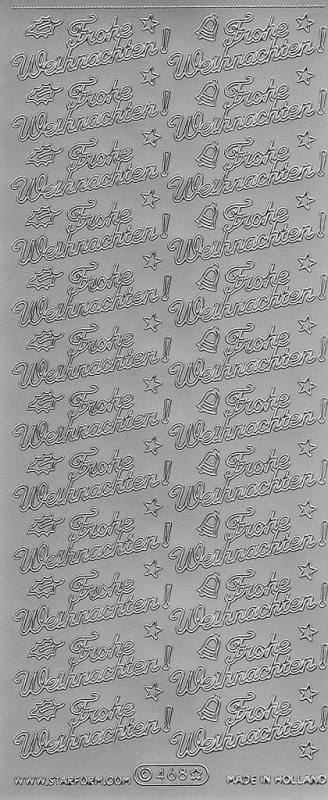 Frohe
Weihnachten!
Frohe
Weihnachten!
Frohe
Weihnachten!
Frohe
Weihnachten!
Frohe
Weihnachten!
Frohe
Weihnachten!
Frohe
Weihnachten!
Frohe
Weihnachten!
Frohe
Weihnachten!
Frohe
Weihnachten!
Frohe
Weihnachten!
Frohe
Weihnachten!
Frohe
Weihnachten!
Frohe
Weihnachten!
Frohe
Weihnachten!
Frohe
Weihnachten!
Frohe
Weihnachten!
Frohe
Weihnachten!
Frohe
Weihnachten!
Frohe
Weihnachten!
Frohe
Weihnachten!
Frohe
Weihnachten!
Frohe
Weihnachten!
Frohe
Weihnachten!
WWW.STARFORM.COM © 468 MADE IN HOLLAND